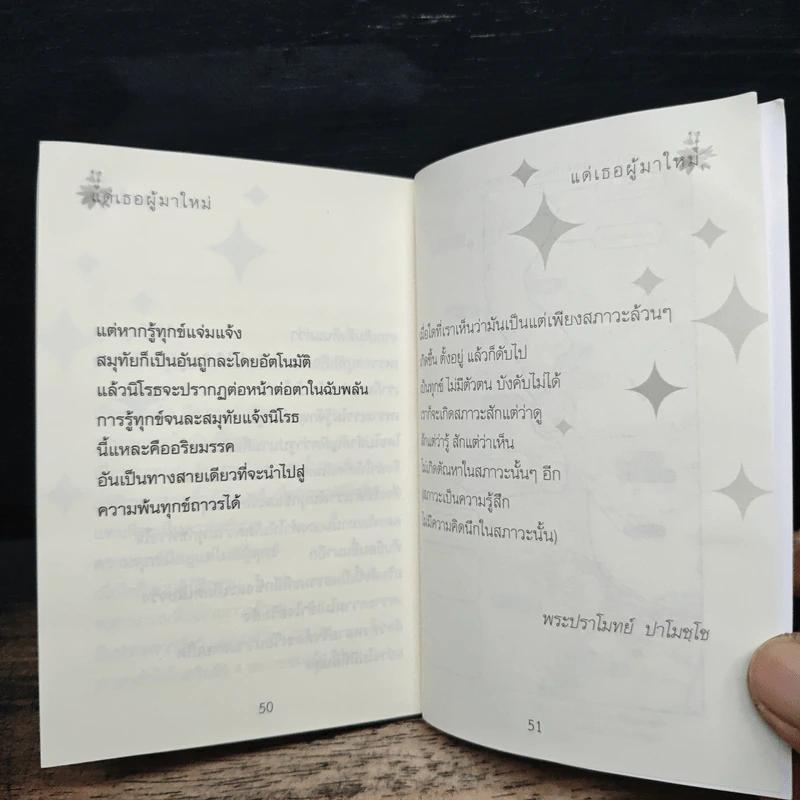 แด่เธอผู้มาใหม่
แต่หากรู้ทุกข์แจ่มแจ้ง
สมุทัยก็เป็นอันถูกละโดยอัตโนมัติ
แล้วนิโรธจะปรากฏต่อหน้าต่อตาในฉับพลัน
การรู้ทุกข์จนละสมุทัยแจ้งนิโรธ
นี้แหละคืออริยมรรค
อันเป็นทางสายเดียวที่จะนำไปสู่
ความพ้นทุกข์ถาวรได้
50
แด่เธอผู้มาใหม่
เมื่อใดที่เราเห็นว่ามันเป็นแต่เพียงสภาวะล้วนๆ
เกิดขึ้น ตั้งอยู่ แล้วก็ดับไป
เป็นทุกข์ ไม่มีตัวตน บังคับไม่ได้
เราก็จะเกิดสภาวะสักแต่ว่าดู
สักแต่ว่ารู้ สักแต่ว่าเห็น
ไม่เกิดตัณหาในสภาวะนั้นๆ อีก
(สภาวะเป็นความรู้สึก
ไม่มีความคิดนึกในสภาวะนั้น)
พระปราโมทย์ ปาโมชฺโช
51